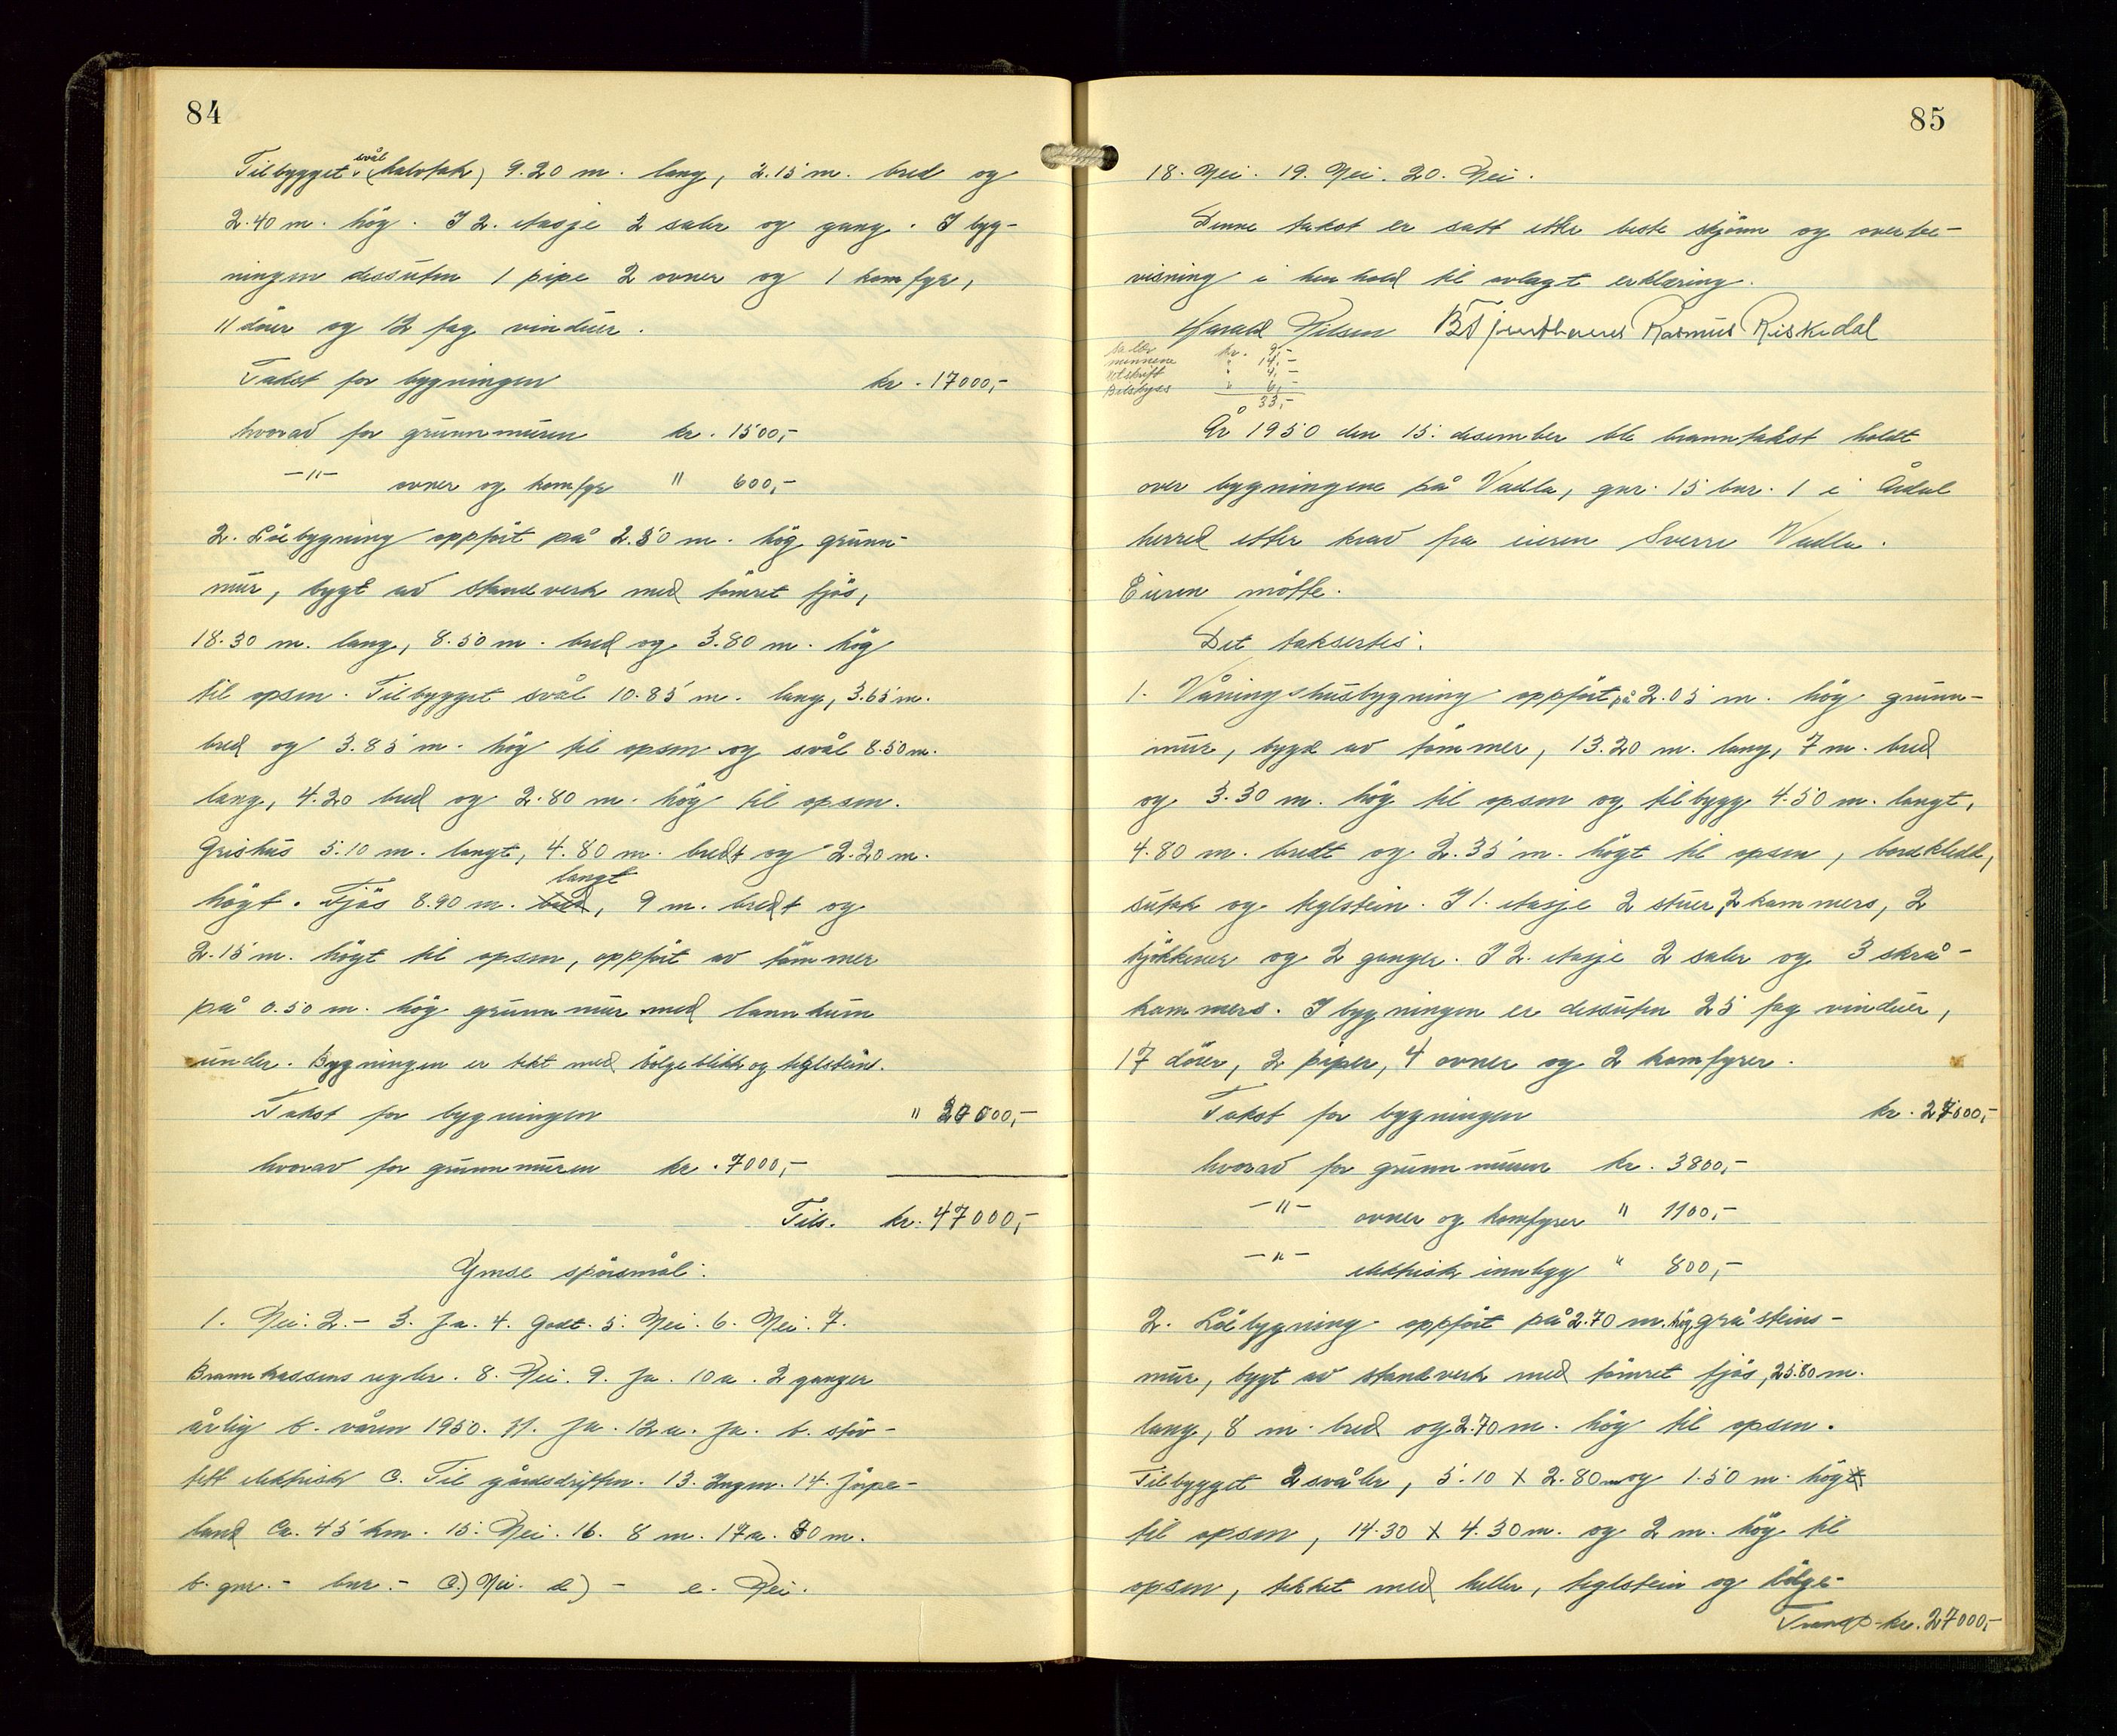 84
Tilbygget svål (halvtak) 9.20 m. lang, 2.15 m. bred og
2.40 m. hög. I 2. etasje 2 saler og gang. I byg-
ningen dessuten 1 pipe 2 ovner og 1 komfyr,
11 dörer og 12 fag vinduer.
Takst for bygningen kr. 17000,-
hvorav for grunnmuren kr. 1500,-
-"- ovner og komfyr " 600,-
2. Löebygning oppfört på 2.50 m. hög grunn-
mur, bygt av standverk med tömret fjös,
18.30 m. lang, 8.50 m. bred og 3.80 m. hög
til opsen. Tilbygget svål 10.85 m. lang, 3.65 m.
bred og 3.85 m. hög til opsen og svål 8.50 m.
lang, 4.20 bred og 2.80 m. hög til opsen.
Grishus 5.10 m. langt, 4.80 m. bredt og 2.20 m.
högt. Fjös 8.90 m. bred langt, 9 m. bredt og
2.15 m. högt til opsen, oppfört av tömmer
på 0.50 m. hög grunnmur med lannkum
under. Bygningen er tekt med bölgeblikk og teglstein.
Takst for bygningen " 30000,-
hvorav for grunnmuren kr. 7000,-
Tils. kr. 47000,-
Ymse spörsmål:
1. Nei. 2. - 3. Ja. 4. Godt. 5. Nei. 6. Nei. 7.
Brannkassens regler. 8. Nei. 9. Ja. 10 a. 2 ganger
årlig b. våren 1950. 11. Ja. 12 a. Ja. b. stöv-
tett elektrisk c. Til gårdsdriften. 13. Ingen. 14. Jörpe-
land ca. 45 km. 15. Nei. 16. 8 m. 17 a. 30 m.
b. gnr. - bnr. - c) Nei. d) - e. Nei.
85
18. Nei. 19. Nei. 20. Nei.
Denne takst er satt etter beste skjönn og overbe-
visning i henhold til avlagt erklæring.
Harald Nilsen Rasmus Riskedal
kr. 9,-
mennene " 14,-
Utskrift " 4,-
Bilskyss " 6,-
33,-
År 1950 den 15. desember ble branntakst holdt
over bygningene på Vadla, gnr. 15 bnr. 1 i Årdal
herred etter krav fra eieren Sverre Vadla.
Eieren mötte.
Det taksertes:
1. Våningshusbygning oppfört på 2.05 m. hög grunn-
mur, bygd av tömmer, 13.20 m. lang, 7 m. bred
og 3.30 m. hög til opsen og tilbygg 4.50 m. langt,
4.80 m. bredt og 2.35 m. högt til opsen, bordkledd,
sutak og teglstein. I 1. etasje 2 stuer, 2 kammers, 2
kjökkener og 2 ganger. I 2. etasje 2 saler og 3 skrå-
kammers. I bygningen er dessuten 25 fag vinduer,
17 dörer, 2 piper, 4 ovner og 2 komfyrer.
Takst for bygningen kr. 27000,-
hvorav for grunnmuren kr. 3800,-
-"- ovner og komfyrer " 1100,-
-"- elektrisk innbygg " 800,-
2. Löebygning oppfört på 2.70 m. hög gråsteins-
mur, bygt av standverk med tömret fjös, 25.80 m.
lang, 8 m. bred og 2.70 m. hög til opsen.
Tilbygget 2 svåler, 5.10 x 2.80 m og 1.50 m. hög
til opsen, 14.30 x 4.30 m. og 2 m. hög til
opsen, tekket med heller, teglstein og bölge-
Transp. kr. 27000,-